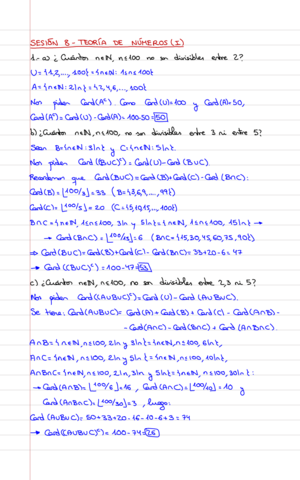 SESIÓN 8 - TEORÍA DE NÚMEROS (I)
1.- a) ¿Cuántos n∈ℕ, n≤100 no son divisibles entre 2?
U = {1,2,..., 100} = {n∈ℕ: 1≤n≤100}
A = {n∈ℕ: 2|n} = {2,4,6,..., 100}
Nos piden Card(Aᶜ). Como Card(U)=100 y Card(A)=50,
Card(Aᶜ) = Card(U) - Card(A) = 100-50 = 50
b) ¿Cuántos n∈ℕ, n≤100, no son divisibles entre 3 ni entre 5?
Sean B={n∈ℕ: 3|n} y C={n∈ℕ: 5|n}.
Nos piden Card((B∪C)ᶜ) = Card(U) - Card(B∪C).
Recordemos que Card(B∪C) = Card(B) + Card(C) - Card(B∩C):
Card(B) = ⌊100/3⌋ = 33 (B={3,6,9,..., 99})
Card(C) = ⌊100/5⌋ = 20 (C={5,10,15,..., 100})
B∩C = {n∈ℕ, 1≤n≤100, 3|n y 5|n} = {n∈ℕ, 1≤n≤100, 15|n} →
→ Card(B∩C) = ⌊100/15⌋ = 6 (B∩C={15,30,45,60,75,90})
⇒ Card(B∪C) = Card(B) + Card(C) - Card(B∩C) = 33+20-6 = 47
⇒ Card((B∪C)ᶜ) = 100-47 = 53
c) ¿Cuántos n∈ℕ, n≤100, no son divisibles entre 2,3 ni 5?
Nos piden Card((A∪B∪C)ᶜ) = Card(U) - Card(A∪B∪C).
Se tiene: Card(A∪B∪C) = Card(A) + Card(B) + Card(C) - Card(A∩B) -
- Card(A∩C) - Card(B∩C) + Card(A∩B∩C).
A∩B = {n∈ℕ, n≤100, 2|n y 3|n} = {n∈ℕ, n≤100, 6|n},
A∩C = {n∈ℕ, n≤100, 2|n y 5|n} = {n∈ℕ, n≤100, 10|n},
A∩B∩C = {n∈ℕ, n≤100, 2|n, 3|n, 5|n} = {n∈ℕ, n≤100, 30|n} :
→ Card(A∩B) = ⌊100/6⌋ = 16, Card(A∩C) = ⌊100/10⌋ = 10 y
Card(A∩B∩C) = ⌊100/30⌋ = 3, luego:
Card(A∪B∪C) = 50+33+20-16-10-6+3 = 74
→ Card((A∪B∪C)ᶜ) = 100-74 = 26